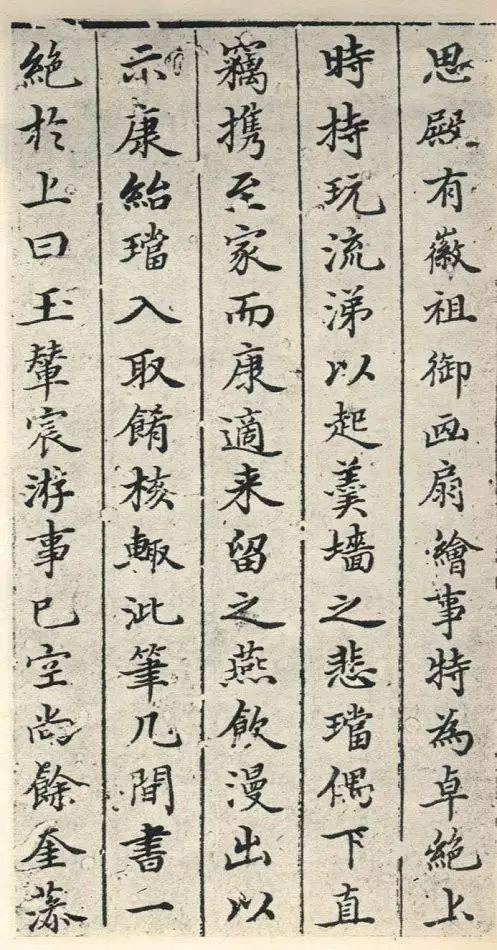 思殿有徽祖御画扇繪事特為卓絶上
時持玩流涕以起羹墻之悲璫偶下直
竊携至家而康適来留之燕飲漫出以
示康紿璫入取餚核輙泚筆几間書一
絶於上曰玉輦宸游事已空尚餘奎藻